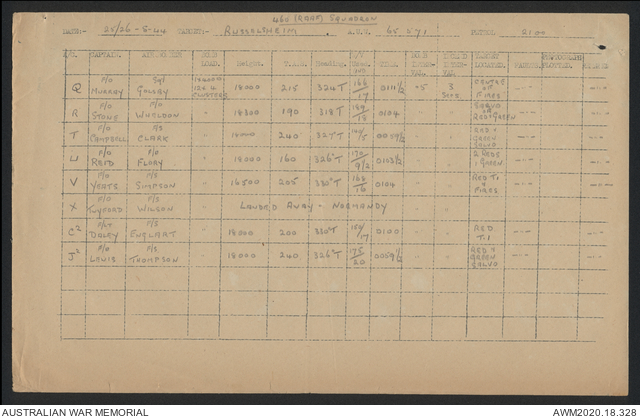 460 (RAAF) SQUADRON
DATE:- 25/26-8-44 TARGET:- RUSSELSHEIM A.U.W. 65571 PETROL 2100
A/C. CAPTAIN. AIR BOMBER BOMB LOAD. Height. T.A.S. Heading. TIME. TARGET LOCATED.
Q P/O MURRAY Sgt 18000 215 324°T 168/17 0111½ .5 3 Secs. CENTRE OF FIRES
R P/O STONE P/O WHELDON 18300 190 318°T 189/18 0104 RED + GREEN
T P/O CAMPBELL F/S CLARK 18000 240 327°T 0059½ RED + GREEN SALVO
U P/O REID P/O FLORY 18000 160 326°T 170/9½ 0103½ 2 REDS 1 GREEN
V P/O YEATS F/S SIMPSON 16500 205 330°T 168/16 0104 RED T.I + FIRES
X F/O F/S WILSON LANDED AWAY - NORMANDY
C² F/LT DALEY F/S ENGLART 18000 200 330°T 0100 RED T.I
J² P/O LEWIS F/S THOMPSON 18000 240 326°T 175/20 0059½ RED + GREEN SALVO
AUSTRALIAN WAR MEMORIAL AWM2020.18.328